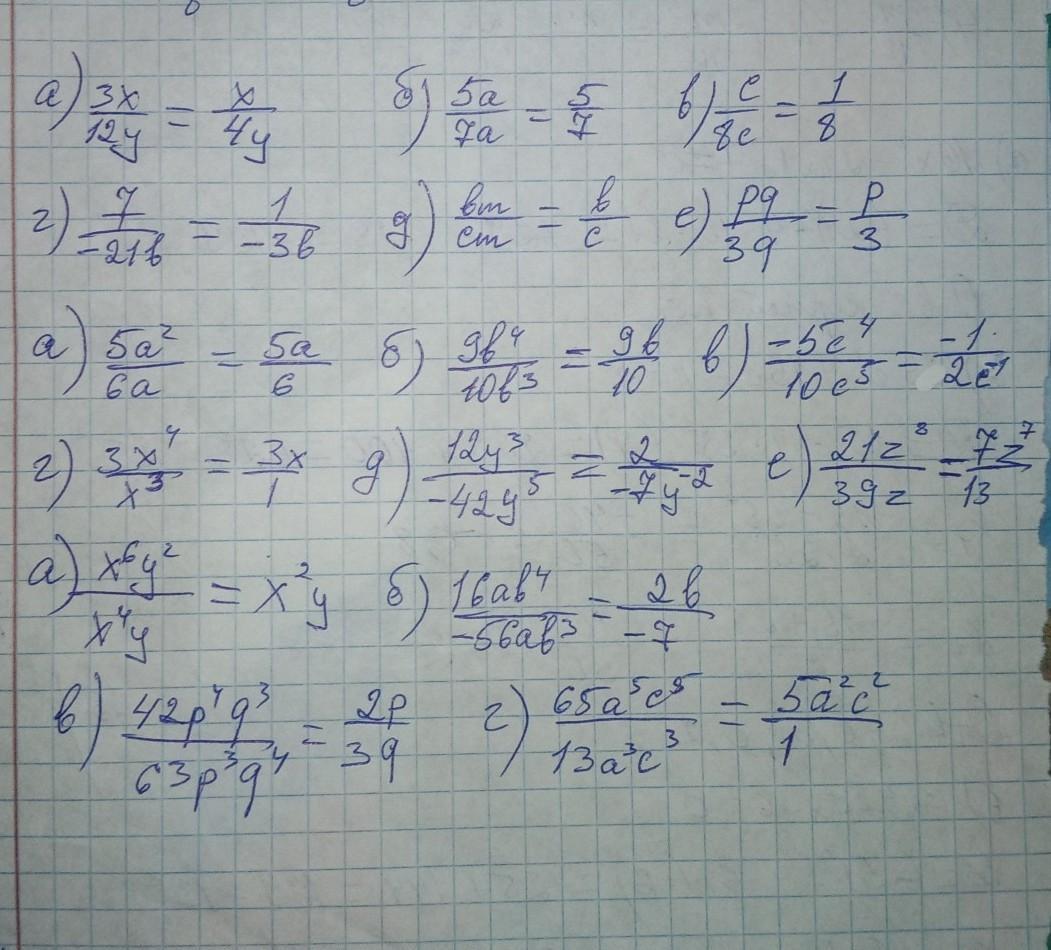 а) 3x/12y = x/4y б) 5a/7a = 5/7 в) c/8c = 1/8
г) 7/-21в = 1/-3в д) вm/cm = в/c е) pq/3q = p/3
а) 5a²/6a = 5a/6 б) 9в⁴/10в³ = 9в/10 в) -5c⁴/10c⁵ = -1/2c⁻¹
г) 3x⁴/x³ = 3x/1 д) 12y³/-42y⁵ = 2/-7y⁻² е) 21z⁸/39z = 7z⁷/13
а) x⁶y²/x⁴y = x²y б) 16aв⁴/-56aв³ = 2в/-7
в) 42p⁴q³/63p³q⁴ = 2p/3q г) 65a⁵c⁵/13a³c³ = 5a²c²/1